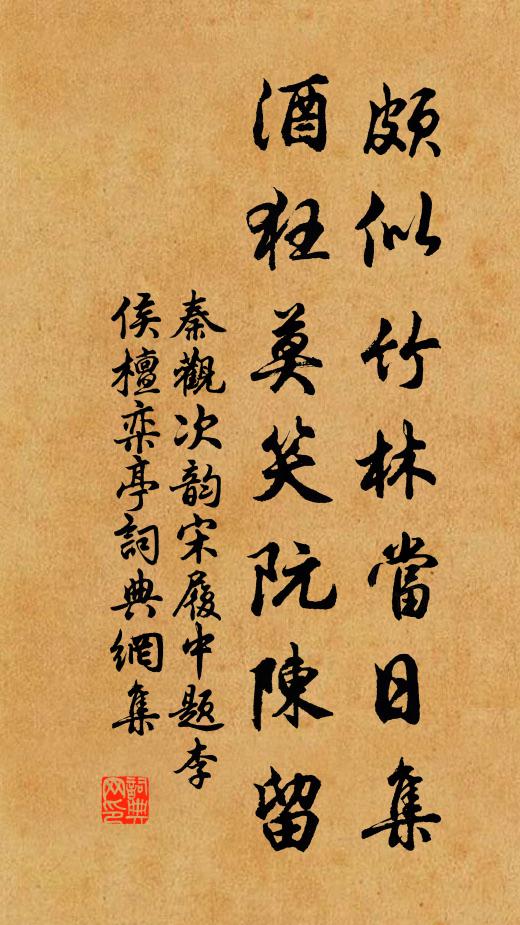 頗似竹林當日集
酒狂莫笑阮陳留
秦觀次韵宋履中題李
侯檀栾亭詞典網集
詞典
网印